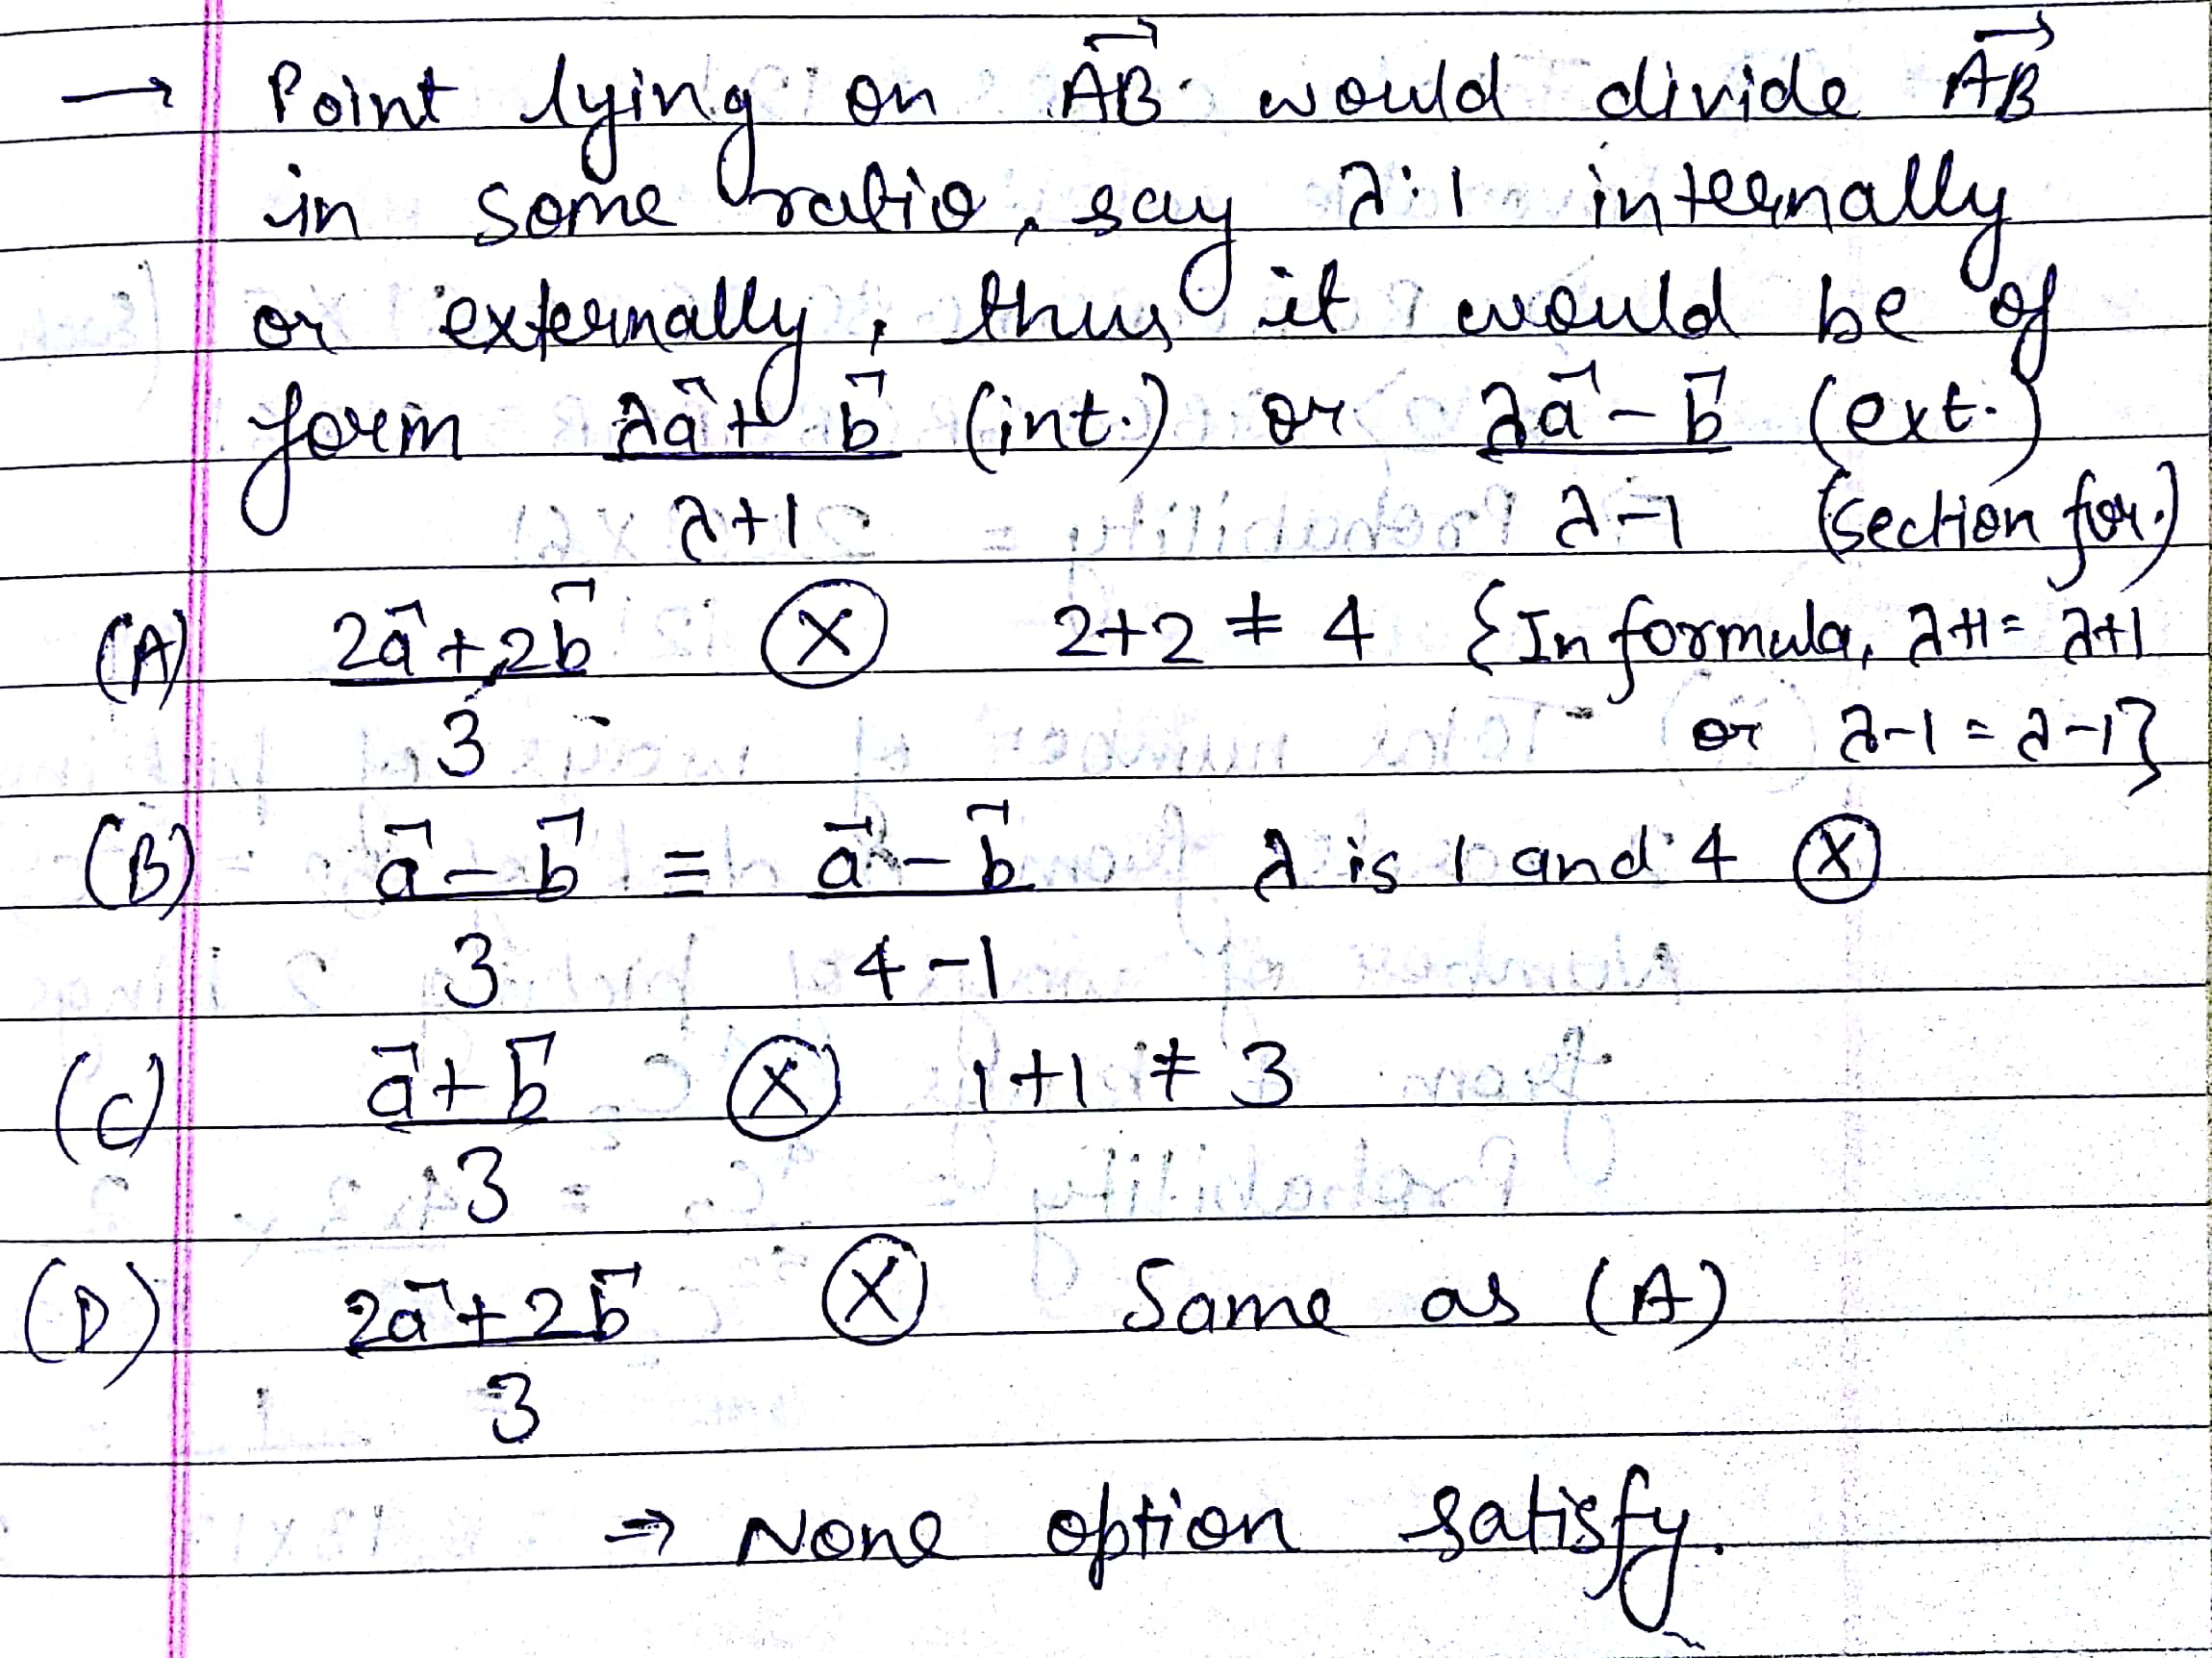 → Point lying on \overrightarrow{AB} would divide \overrightarrow{AB}
in some ratio, say λ:1 internally
or externally, thus it would be of
form \frac{λ\vec{a} + \vec{b}}{λ+1} (int.) or \frac{λ\vec{a} - \vec{b}}{λ-1} (ext.)
(section for.)
(A) \frac{2\vec{a} + 2\vec{b}}{3} ⊗ 2+2 ≠ 4 {In formula, λ+1 = λ+1
or λ-1 = λ-1}
(B) \frac{\vec{a} - \vec{b}}{3} = \frac{\vec{a} - \vec{b}}{4-1} λ is 1 and 4 ⊗
(C) \frac{\vec{a} + \vec{b}}{3} ⊗ 1+1 ≠ 3
(D) \frac{2\vec{a} + 2\vec{b}}{3} ⊗ Same as (A)
⇒ None option satisfy.